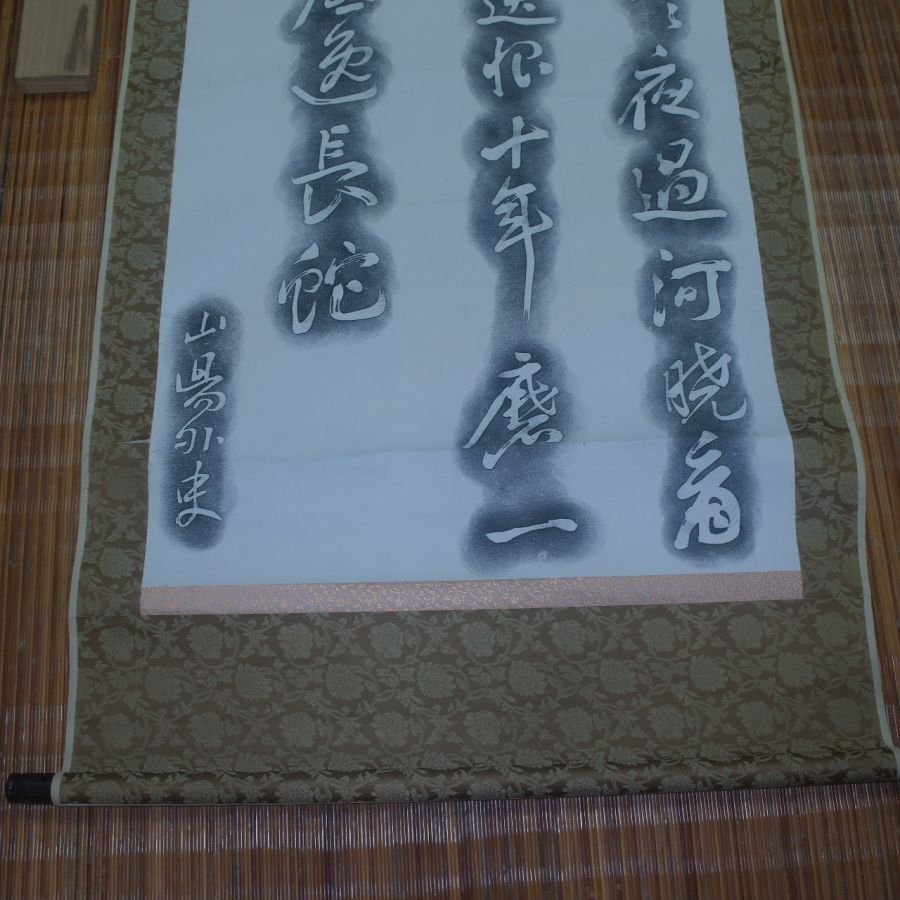 々夜過河曉看
遺恨十年磨一
底逸長蛇
山陽外史